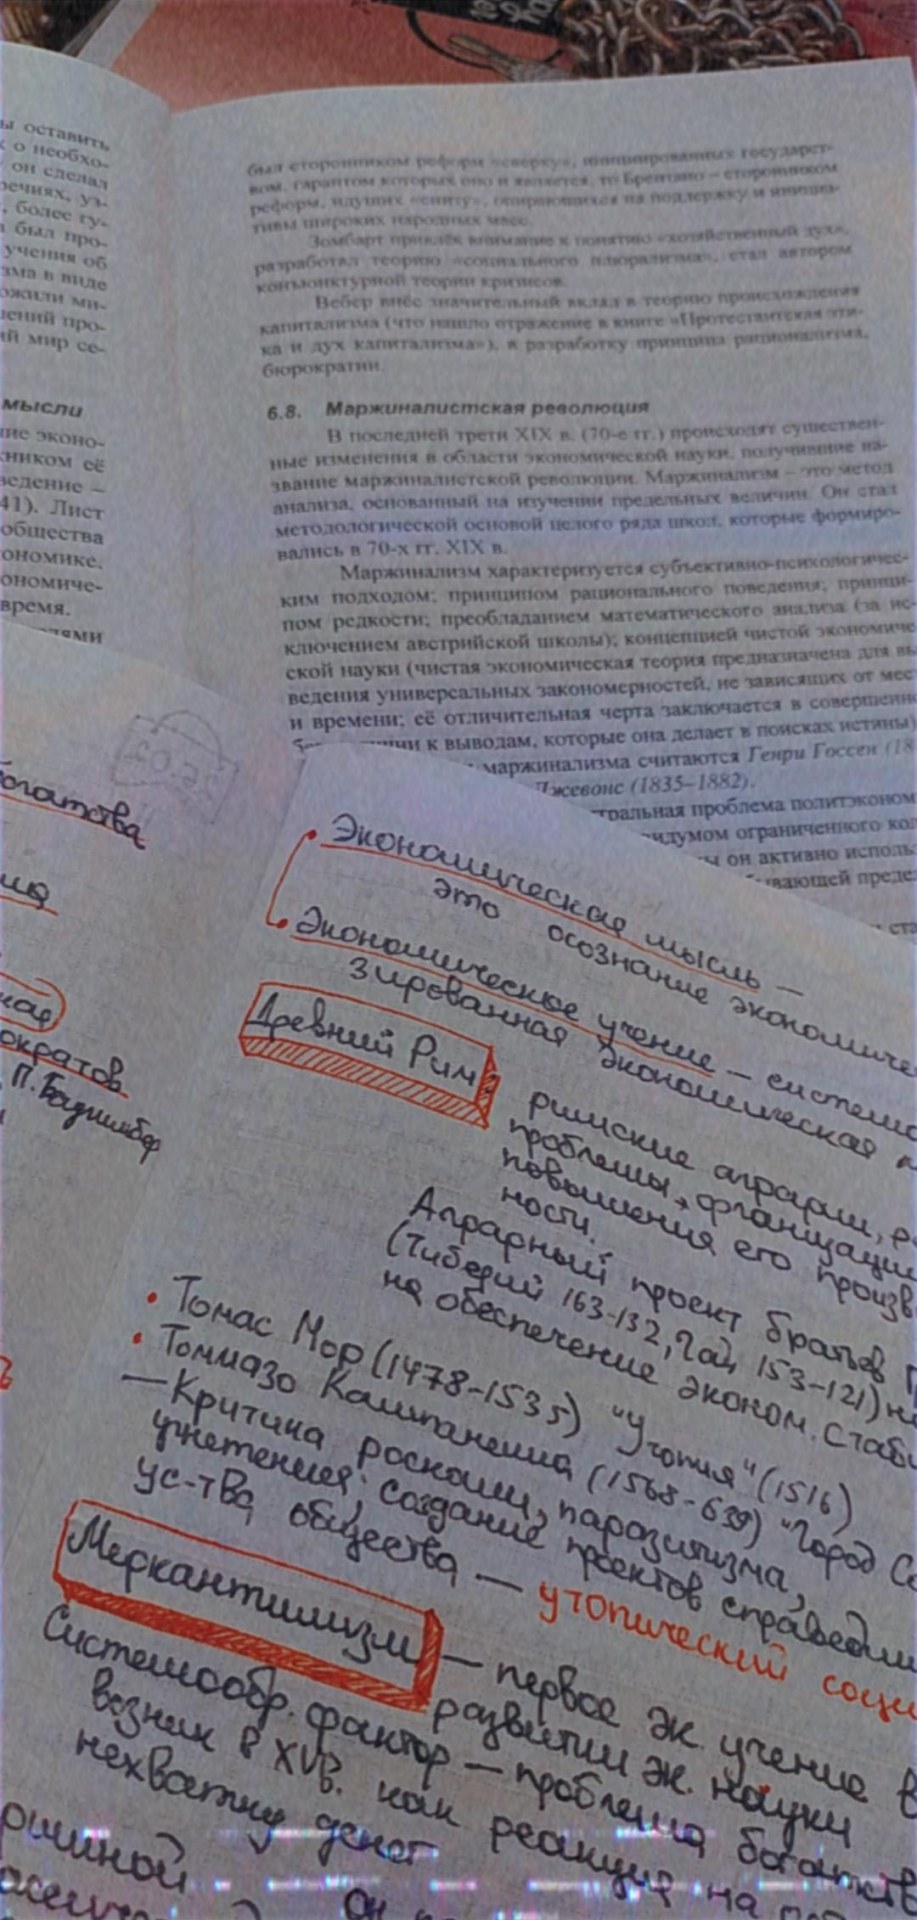 ы оставить
о необхо-
он сделал
речиях, уз-
более гу-
был про-
учения об
зма в виде
ожили ми-
лений про-
ий мир се-
мысли
ние эконо-
ником её
ведение –
41). Лист
общества
ономике,
ономиче-
время.
был сторонником реформ «сверху», инициированных государст-
вом, гарантом которых оно и является, то Брентано – сторонником
реформ, идущих «снизу», опирающихся на поддержку и инициа-
тивы широких народных масс.
Зомбарт привлёк внимание к понятию «хозяйственный дух»,
разработал теорию «социального плюрализма», стал автором
конъюнктурной теории кризисов.
Вебер внёс значительный вклад в теорию происхождения
капитализма (что нашло отражение в книге «Протестантская эти-
ка и дух капитализма»), в разработку принципа рационализма,
бюрократии.
6.8. Маржиналистская революция
В последней трети XIX в. (70-е гг.) происходят существен-
ные изменения в области экономической науки, получившие на-
звание маржиналистской революции. Маржинализм – это метод
анализа, основанный на изучении предельных величин. Он стал
методологической основой целого ряда школ, которые формиро-
вались в 70-х гг. XIX в.
Маржинализм характеризуется субъективно-психологичес-
ким подходом; принципом рационального поведения; принци-
пом редкости; преобладанием математического анализа (за ис-
ключением австрийской школы); концепцией чистой экономиче
ской науки (чистая экономическая теория предназначена для вы
ведения универсальных закономерностей, не зависящих от мес
и времени; её отличительная черта заключается в совершенн
к выводам, которые она делает в поисках истины)
маржинализма считаются Генри Госсен (18
Джевонс (1835–1882).
тральная проблема политэконом
идумом ограниченного кол
ы он активно исполь
ывающей преде
ста
богатства
ократов
П. Буагильбер
Экономическая мысль —
это осознание экономиче
Экономическое учение — система
зированная экономическая
Древний Рим
римские аграрии,
проблемы, организации
повышения его произв
ности.
Аграрный проект братьев
(Тиберий 163-132, Гай 153-121) на
на обеспечение эконом. стаби
• Томас Мор (1478-1535) "Утопия" (1516)
• Томмазо Кампанелла (1568-639) "Город Со
—Критика роскоши, паразитизма,
угнетения; создание проектов справедли
ус-тва общества — утопический соци
Меркантилизм — первое эк. учение в
развитии эк. науки
Системообр. фактор — проблема богатств
возник в XVв. как реакция на
нехватку денег